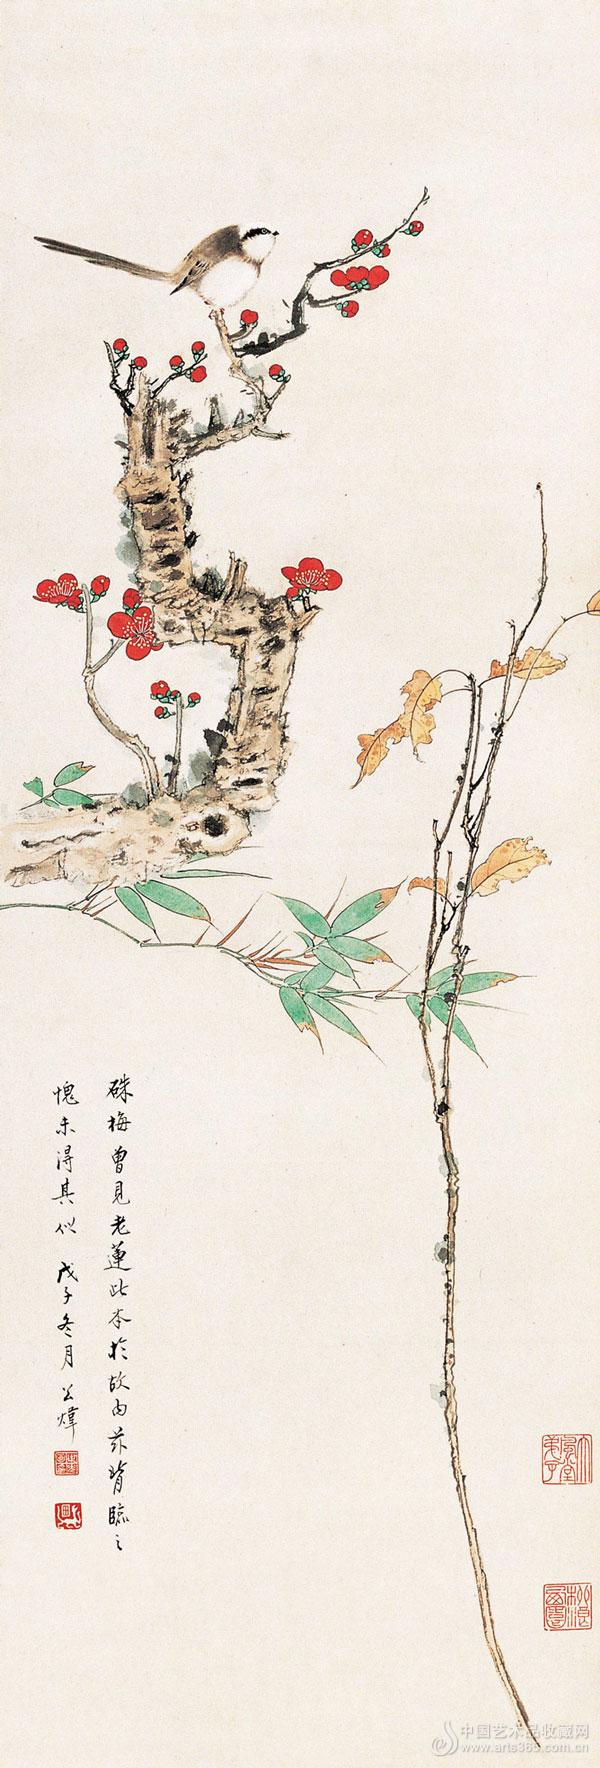 硃梅曾見老蓮此本於故内茲背臨之
愧未得其似 戊子冬月 公煒
大風堂弟子
中国艺术品收藏网
www.arts365.com.cn